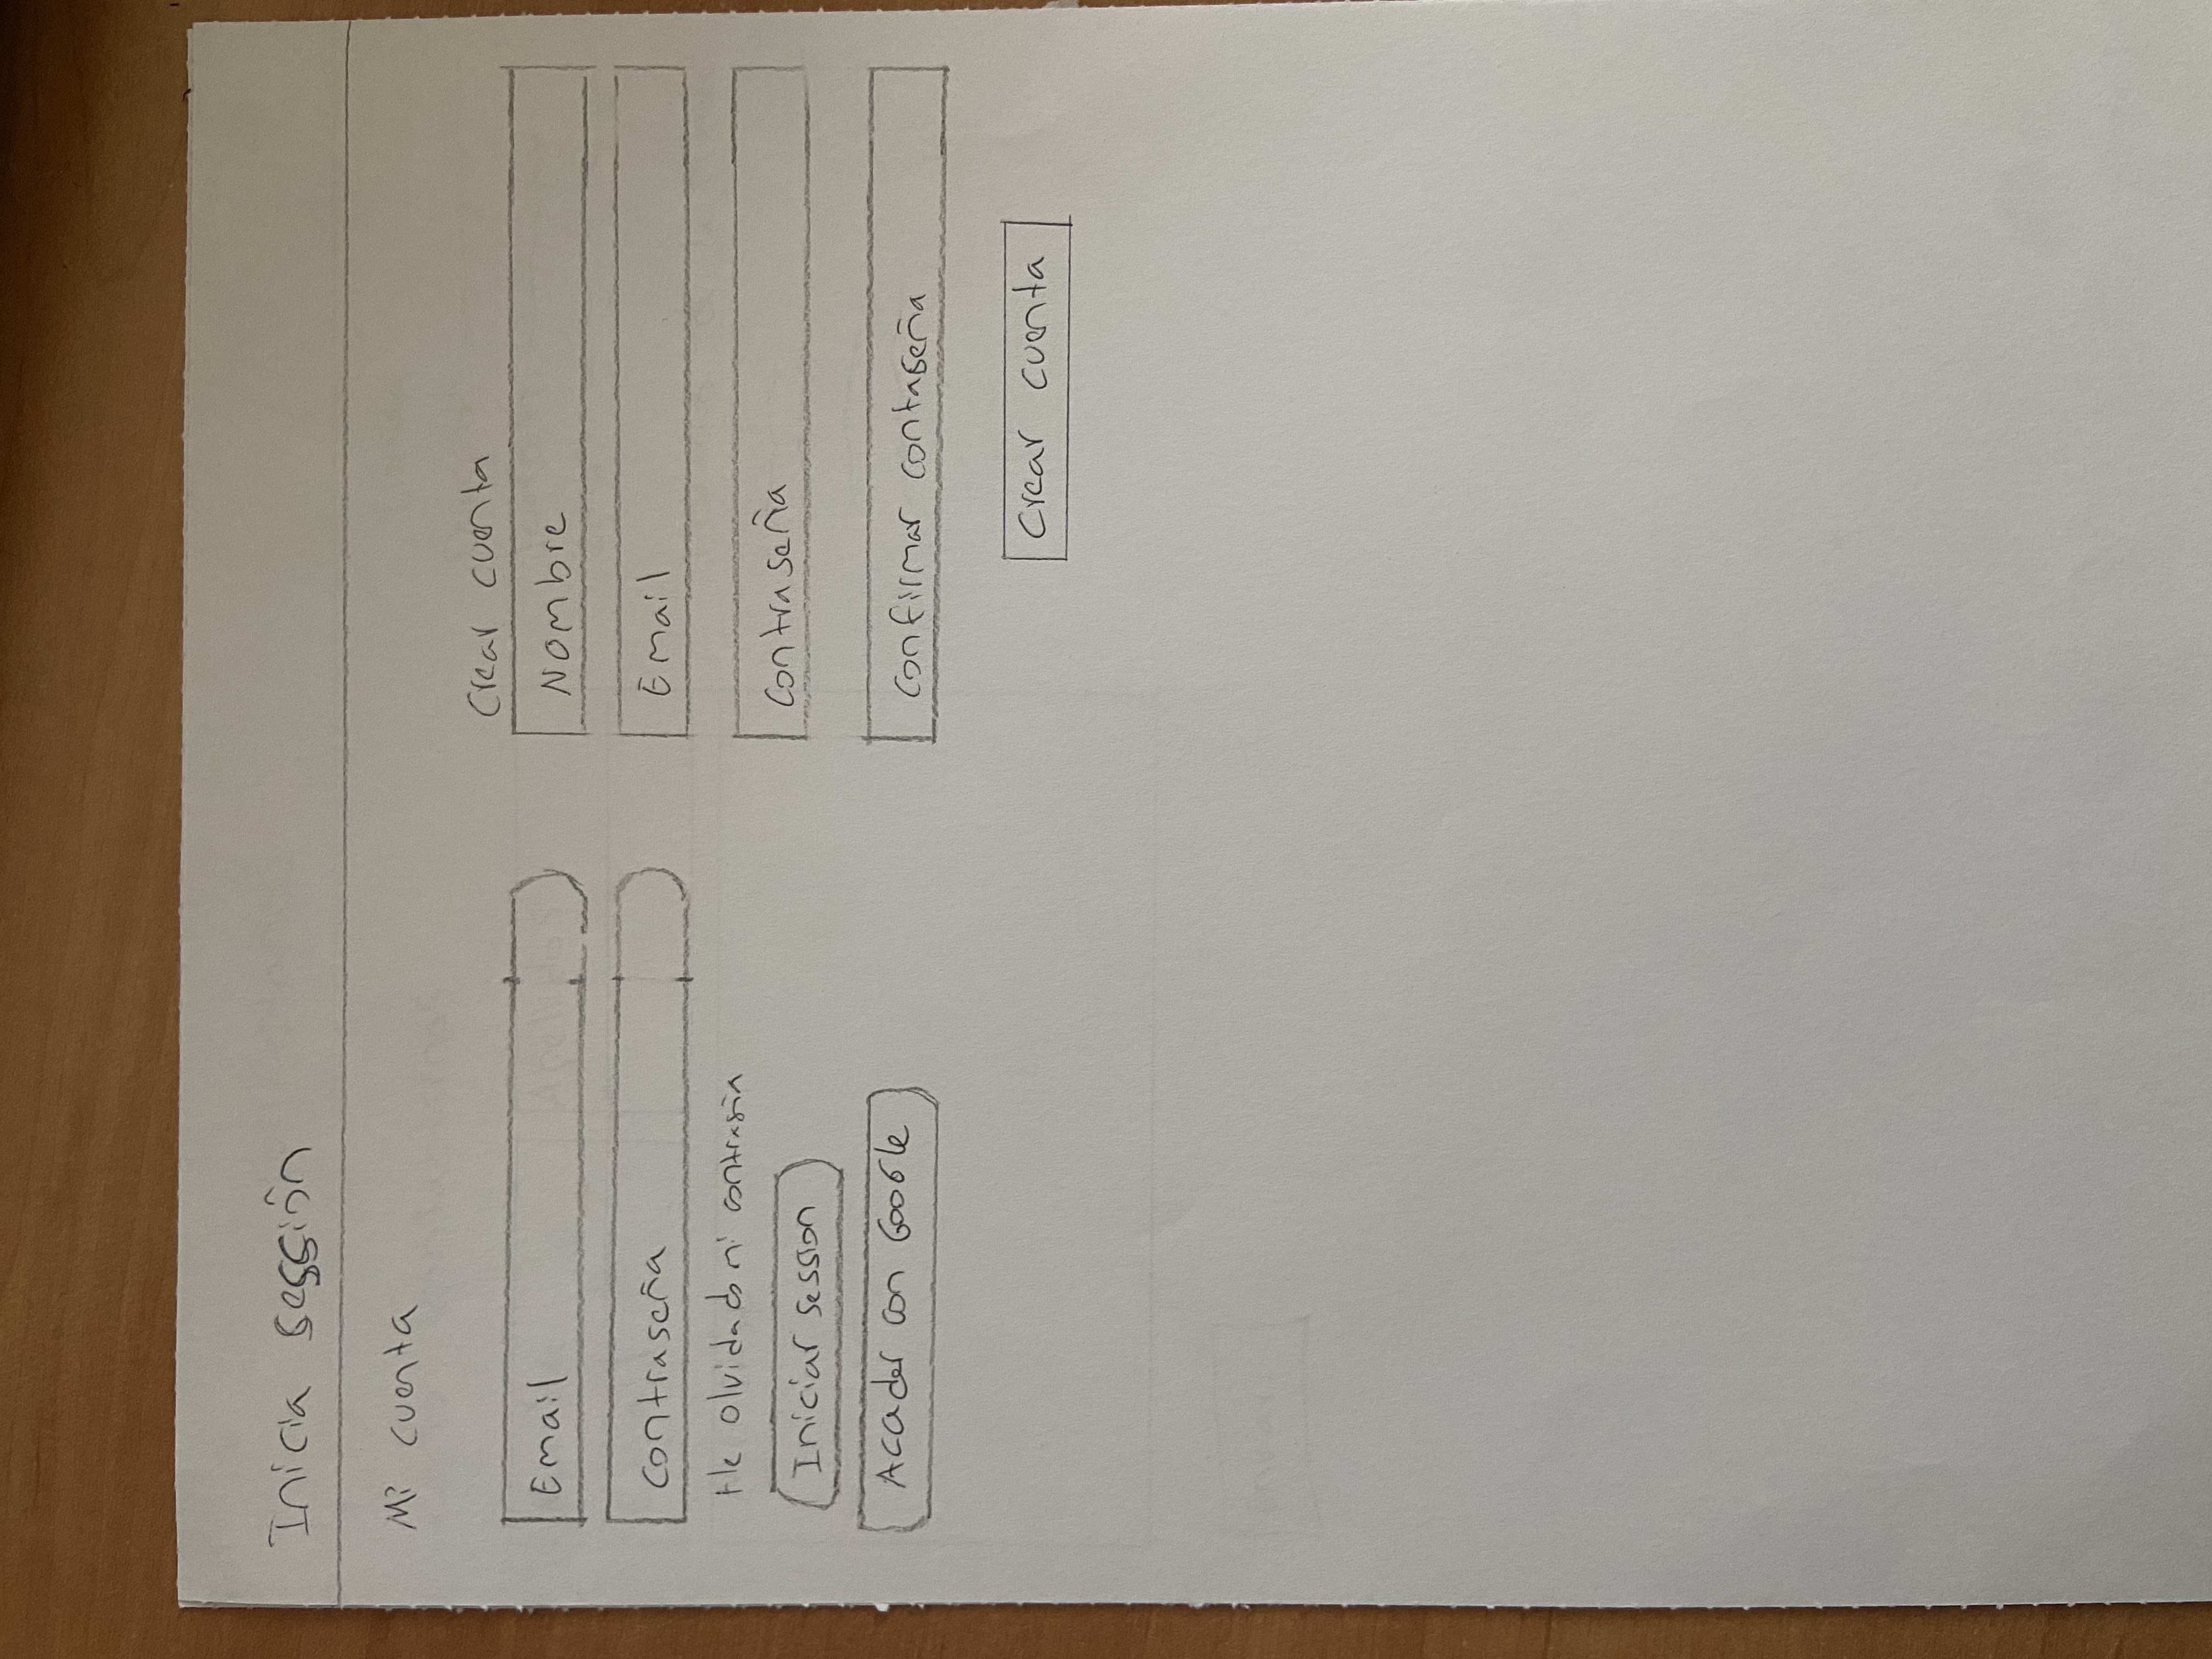 Inicia sessión
Mi cuenta
Email
contraseña
He olvidado mi contraseña
Iniciar session
Accader con Google
Crear cuenta
Nombre
Email
contraseña
confirmar contaseña
Crear cuenta